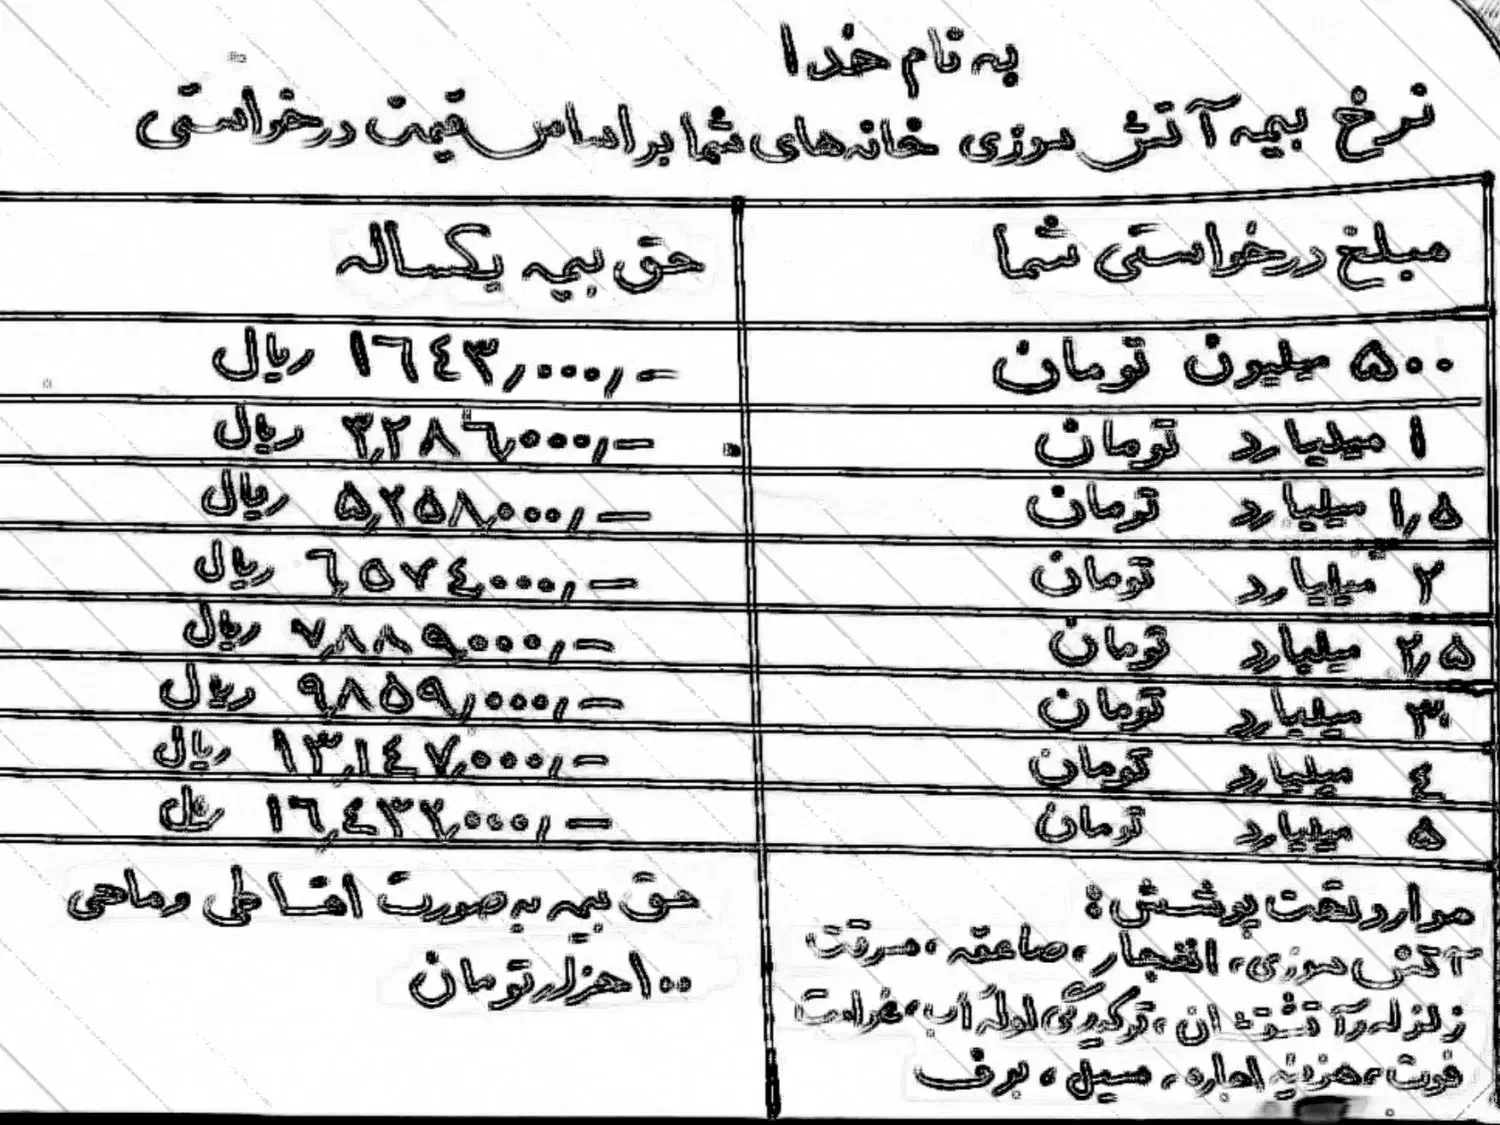 به نام خدا
نرخ بیمه آتش سوزی خانه‌های شما براساس قیمت درخواستی
مبلغ درخواستی شما حق بیمه یکساله
۵۰۰ میلیون تومان ۱۶۴۳,۰۰۰,- ریال
۱ میلیارد تومان ۳,۲۸۶,۰۰۰,- ریال
۱,۵ میلیارد تومان ۵,۲۵۸,۰۰۰,- ریال
۲ میلیارد تومان ۶,۵۷۴,۰۰۰,- ریال
۲,۵ میلیارد تومان ۷,۸۸۹,۰۰۰,- ریال
۳ میلیارد تومان ۹,۸۵۹,۰۰۰,- ریال
۴ میلیارد تومان ۱۳,۱۴۷,۰۰۰,- ریال
۵ میلیارد تومان ۱۶,۴۳۲,۰۰۰,- ریال
موارد تحت پوشش:
آتش سوزی، انفجار، صاعقه، سرقت
زلزله و آتشفشان، ترکیدگی لوله آب، غرامت
فوت، هزینه اجاره، سیل، برف
حق بیمه به صورت اقساطی و ماهی
۱۰۰ هزار تومان